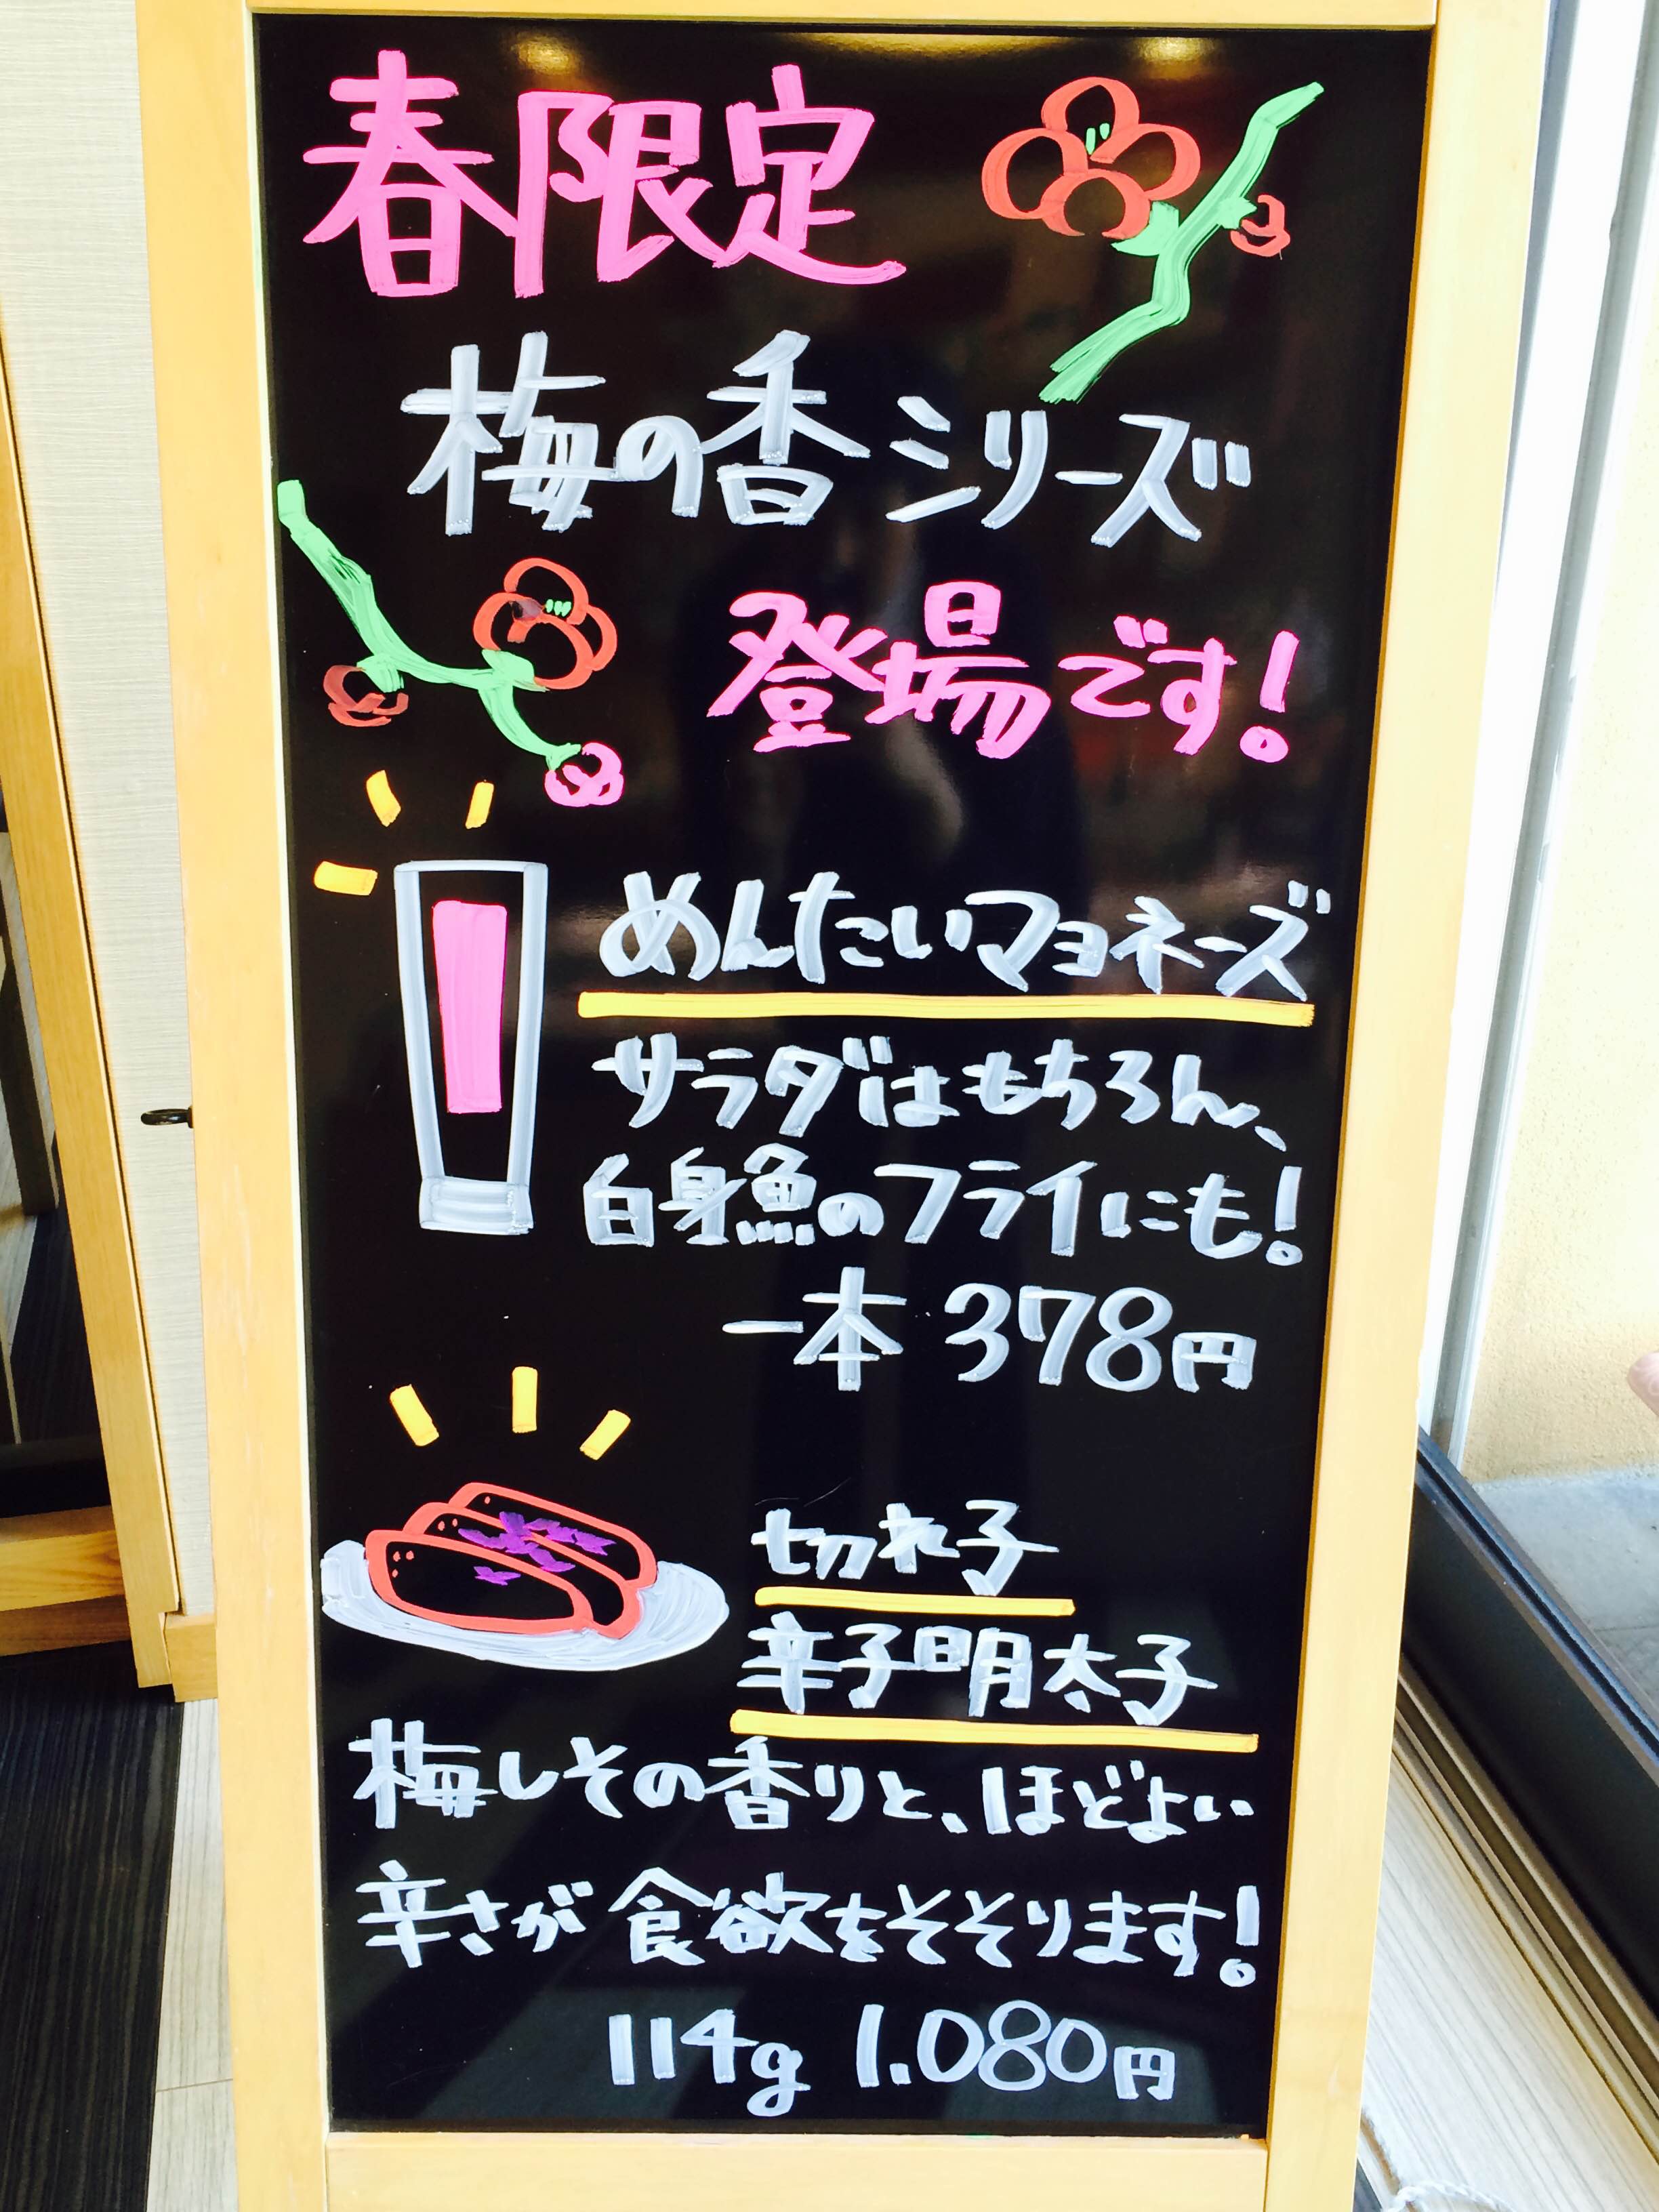 春限定
梅の香シリーズ
登場です!
めんたいマヨネーズ
サラダはもちろん、
白身魚のフライにも!
一本 378円
切れ子
辛子明太子
梅しその香りと、ほどよい
辛さが食欲をそそります!
114g 1.080円